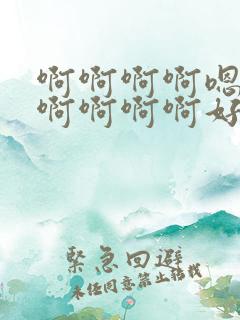 啊啊啊啊嗯
啊啊啊啊好
緊急回避
未经同意禁止转载